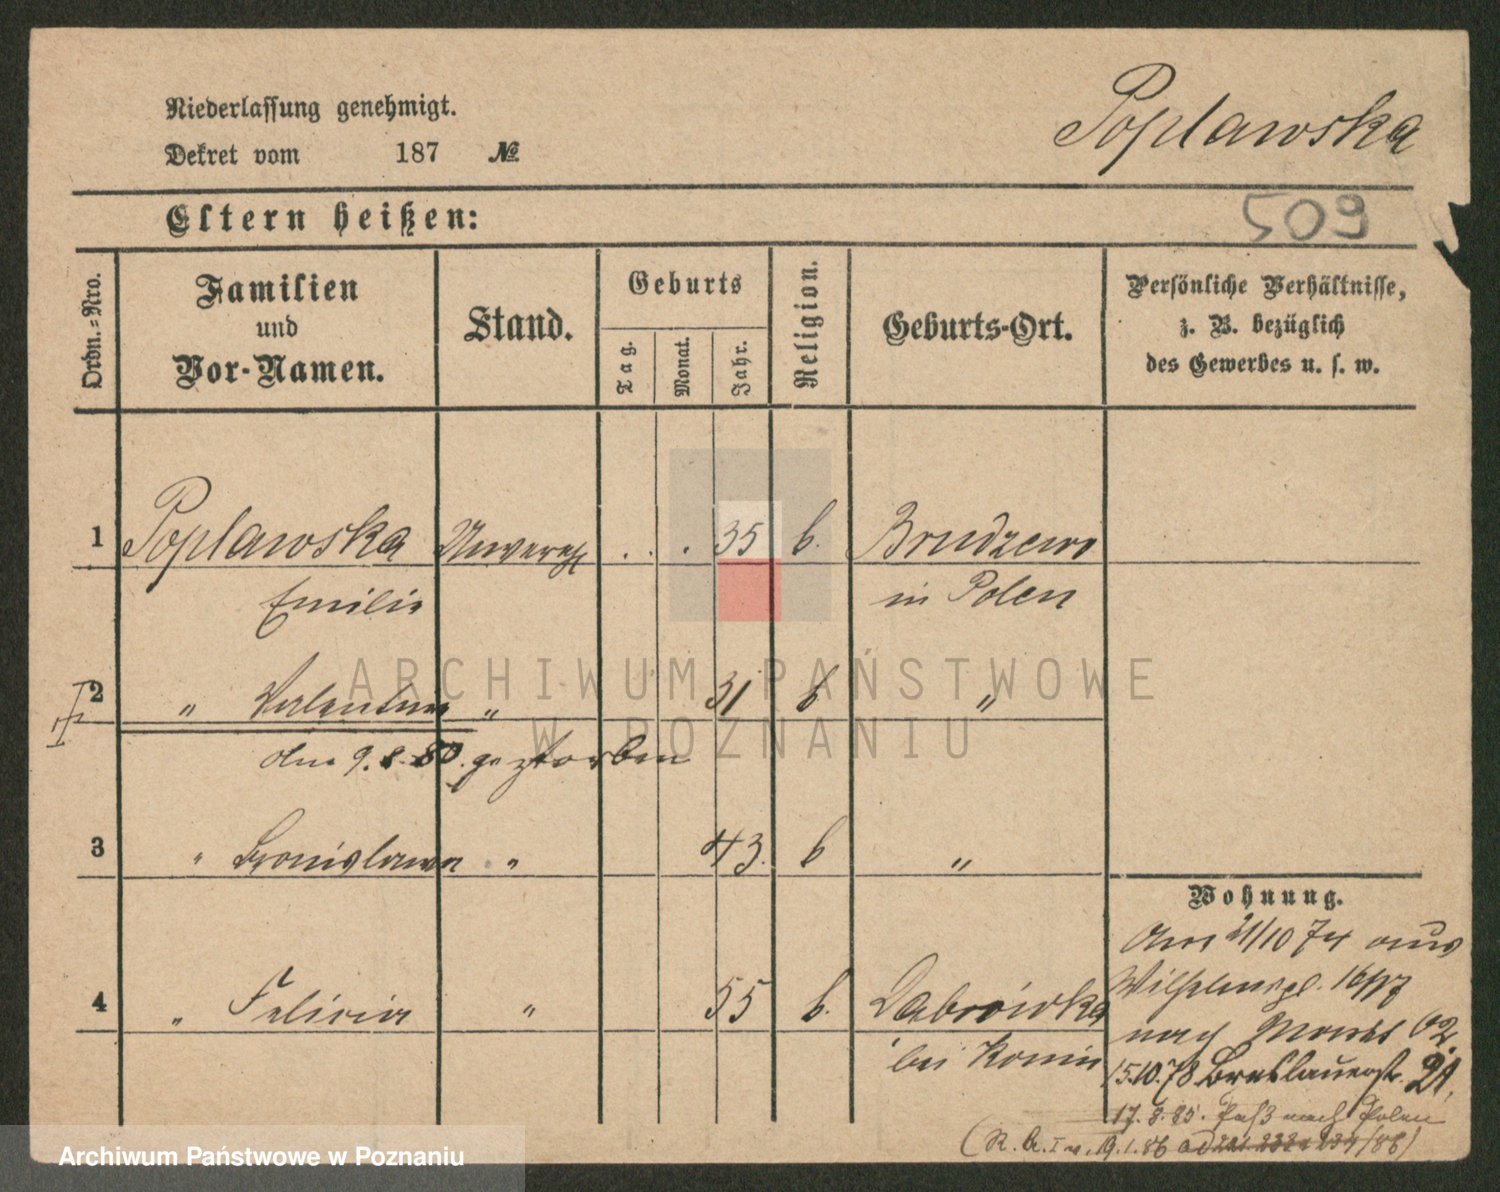 Niederlassung genehmigt.
Poplawska
Dekret vom 187 №
Eltern heißen:
509
Ordn.=Nro.
Familien
und
Vor-Namen.
Stand.
Geburts
Tag.
Monat.
Jahr.
Religion.
Geburts-Ort.
Persönliche Verhältnisse,
z. B. bezüglich
des Gewerbes u. s. w.
1 Poplawska Unvereh . . . 35 k. Brudzewo
Emilie in Polen
2 " Valentine " 31 k "
den 9. 8. 80. gestorben
3 " Bronislawa " 43. k "
Wohnung.
Am 21/10 74 aus
Wilhelmspl. 16/17
4 " Felicia " 55 k. Dabrówka
nach Markt 62.
bei Konin
15.10.78 Breslauerstr. 21.
17. 8. 85. Paß nach Polen
(R. A. I v. 19. 1. 86
ARCHIWUM PAŃSTWOWE
W POZNANIU
Archiwum Państwowe w Poznaniu